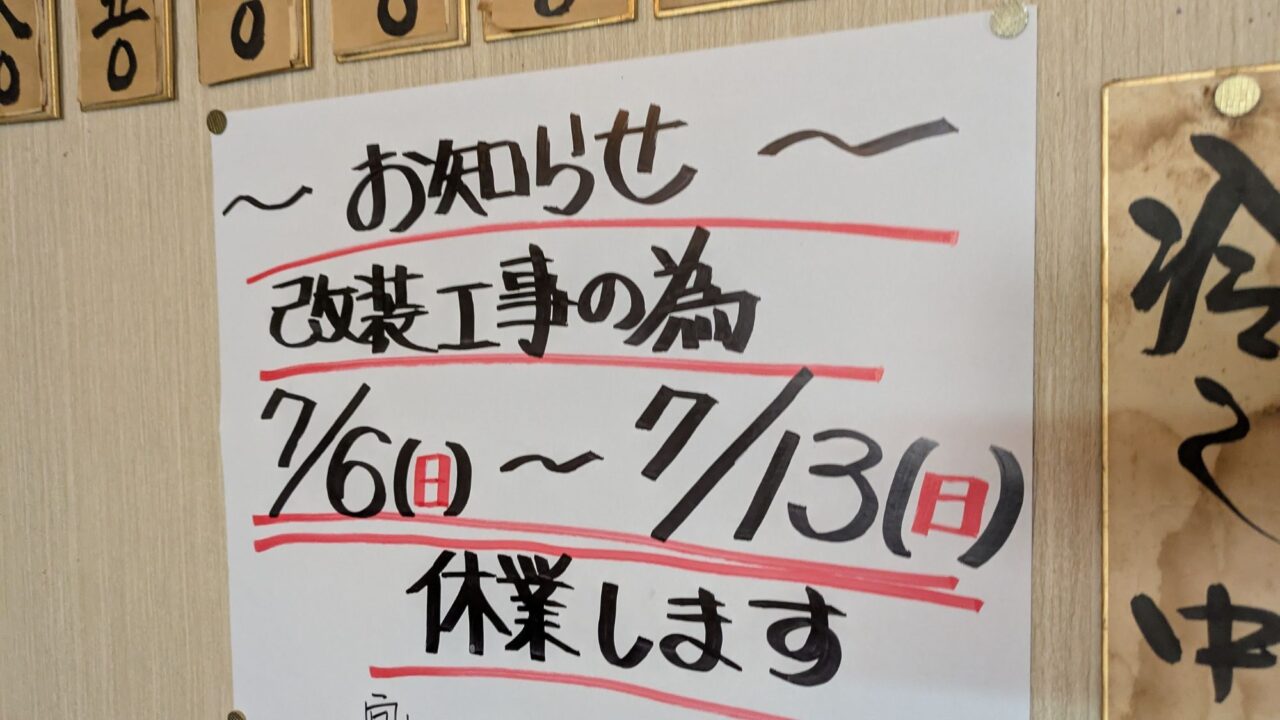 ～ お知らせ ～
改装工事の為
7/6(日)～7/13(日)
休業します
冷
中